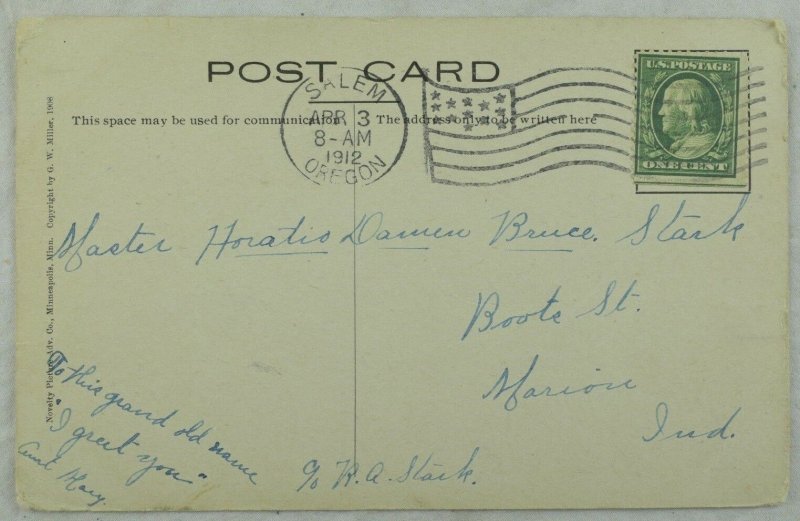 POST CARD
SALEM
APR 3
8-AM
1912
OREGON
U.S. POSTAGE
ONE CENT
This space may be used for communication
The address only to be written here
Novelty Picture Adv. Co., Minneapolis, Minn. Copyright by G. W. Miller, 1908
Master Horatio Damen Bruce. Stark
Boots St.
Marion
Ind.
c/o R. A. Stark.
To this grand old name
"I greet you"
Aunt Mary.